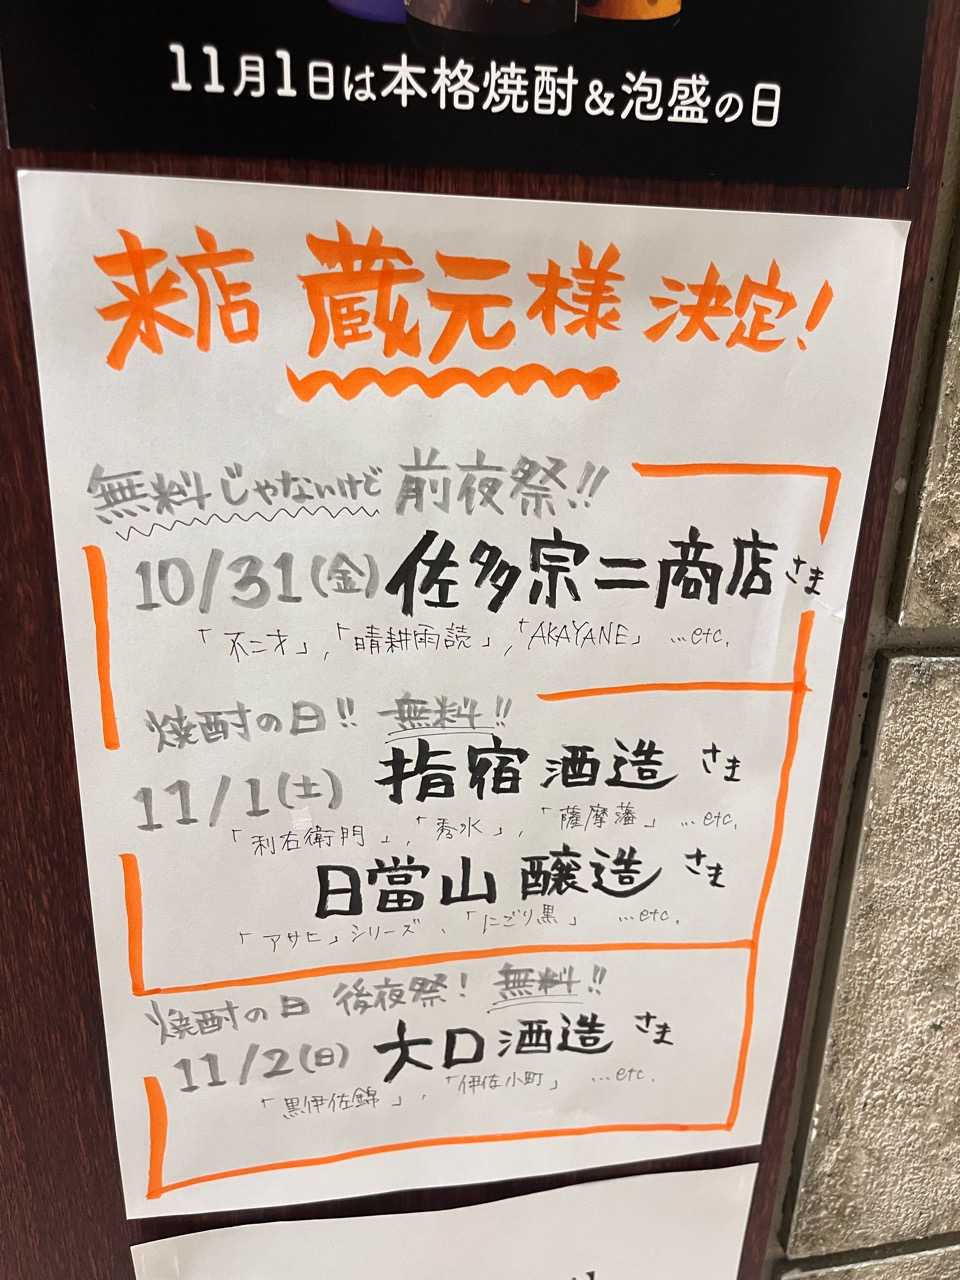 11月1日は本格焼酎&泡盛の日
来店 蔵元様 決定!
無料じゃないけど 前夜祭!!
10/31(金) 佐多宗二商店さま
「不二才」,「晴耕雨読」,「AKAYANE」 ...etc.
焼酎の日!! 無料!!
11/1(土) 指宿酒造 さま
「利右衛門」,「秀水」,「薩摩藩」 ...etc.
日當山醸造 さま
「アサヒ」シリーズ、「にごり黒」 ...etc.
焼酎の日 後夜祭! 無料!!
11/2(日) 大口酒造 さま
「黒伊佐錦」,「伊佐小町」 ...etc.